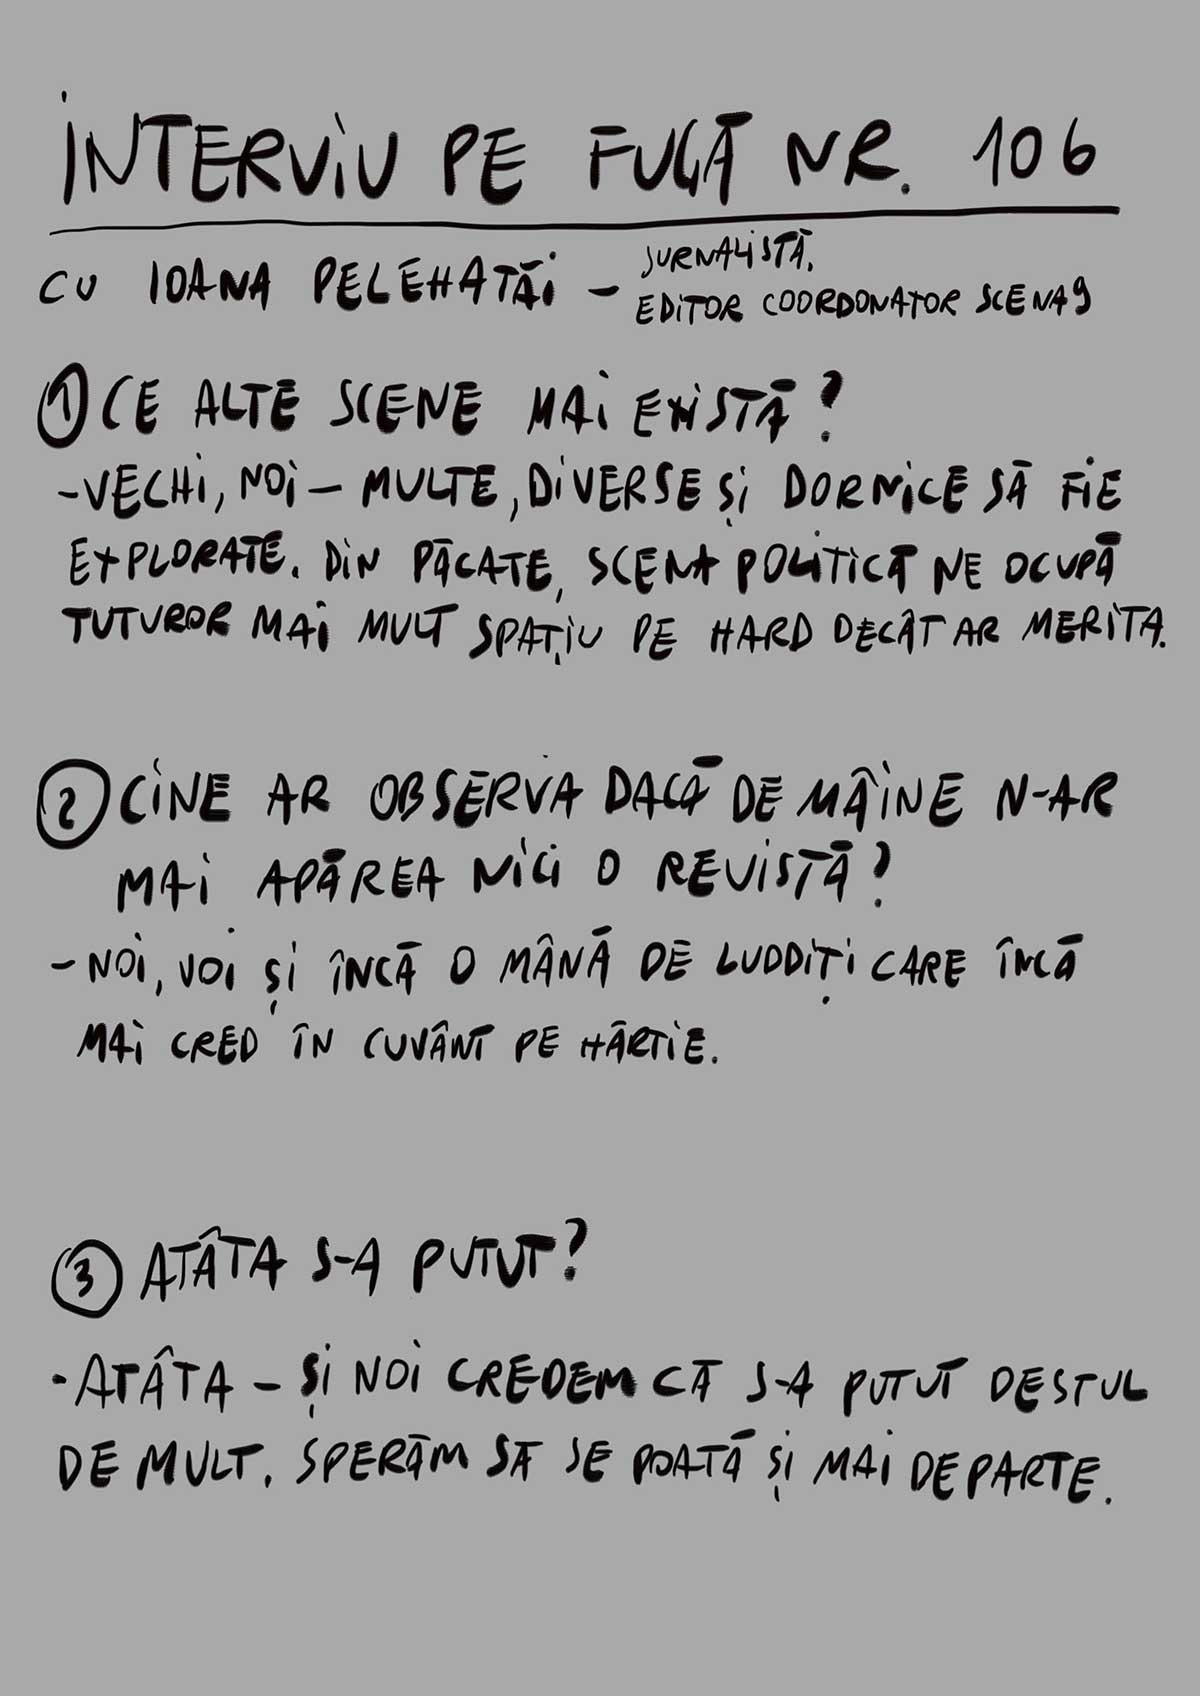 INTERVIU PE FUGĂ NR. 106
CU IOANA PELEHATĂI – JURNALISTĂ,
EDITOR COORDONATOR SCENA9
① CE ALTE SCENE MAI EXISTĂ?
-VECHI, NOI – MULTE, DIVERSE ȘI DORNICE SĂ FIE
EXPLORATE. DIN PĂCATE, SCENA POLITICĂ NE OCUPĂ
TUTUROR MAI MULT SPAȚIU PE HARD DECÂT AR MERITA.
② CINE AR OBSERVA DACĂ DE MÂINE N-AR
MAI APĂREA NICI O REVISTĂ?
- NOI, VOI ȘI ÎNCĂ O MÂNĂ DE LUDDIȚI CARE ÎNCĂ
MAI CRED ÎN CUVÂNT PE HÂRTIE.
③ ATÂTA S-A PUTUT?
- ATÂTA – ȘI NOI CREDEM CĂ S-A PUTUT DESTUL
DE MULT. SPERĂM SĂ SE POATĂ ȘI MAI DEPARTE.